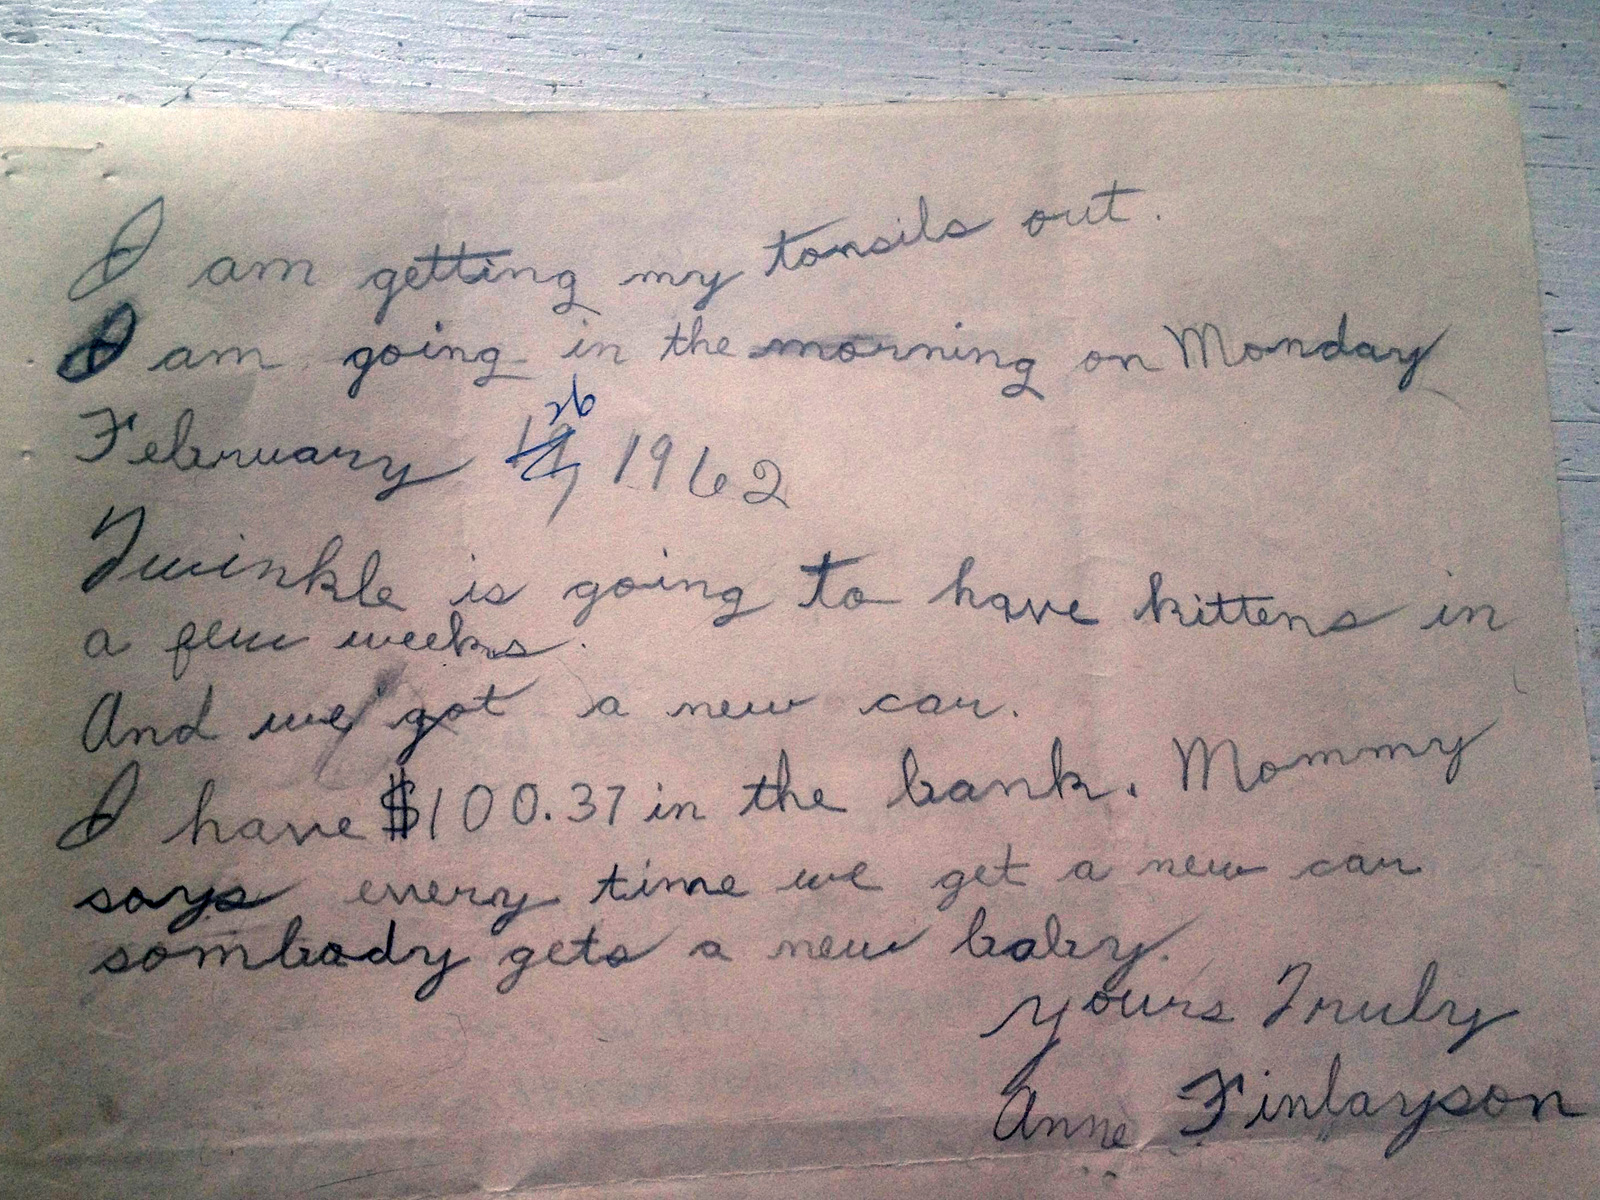 I am getting my tonsils out.
I am going in the morning on Monday
February 26 1962
Twinkle is going to have kittens in
a few weeks.
And we got a new car.
I have $100.37 in the bank. Mommy
says every time we get a new car
sombody gets a new baby.
yours Truly
Anne Finlayson